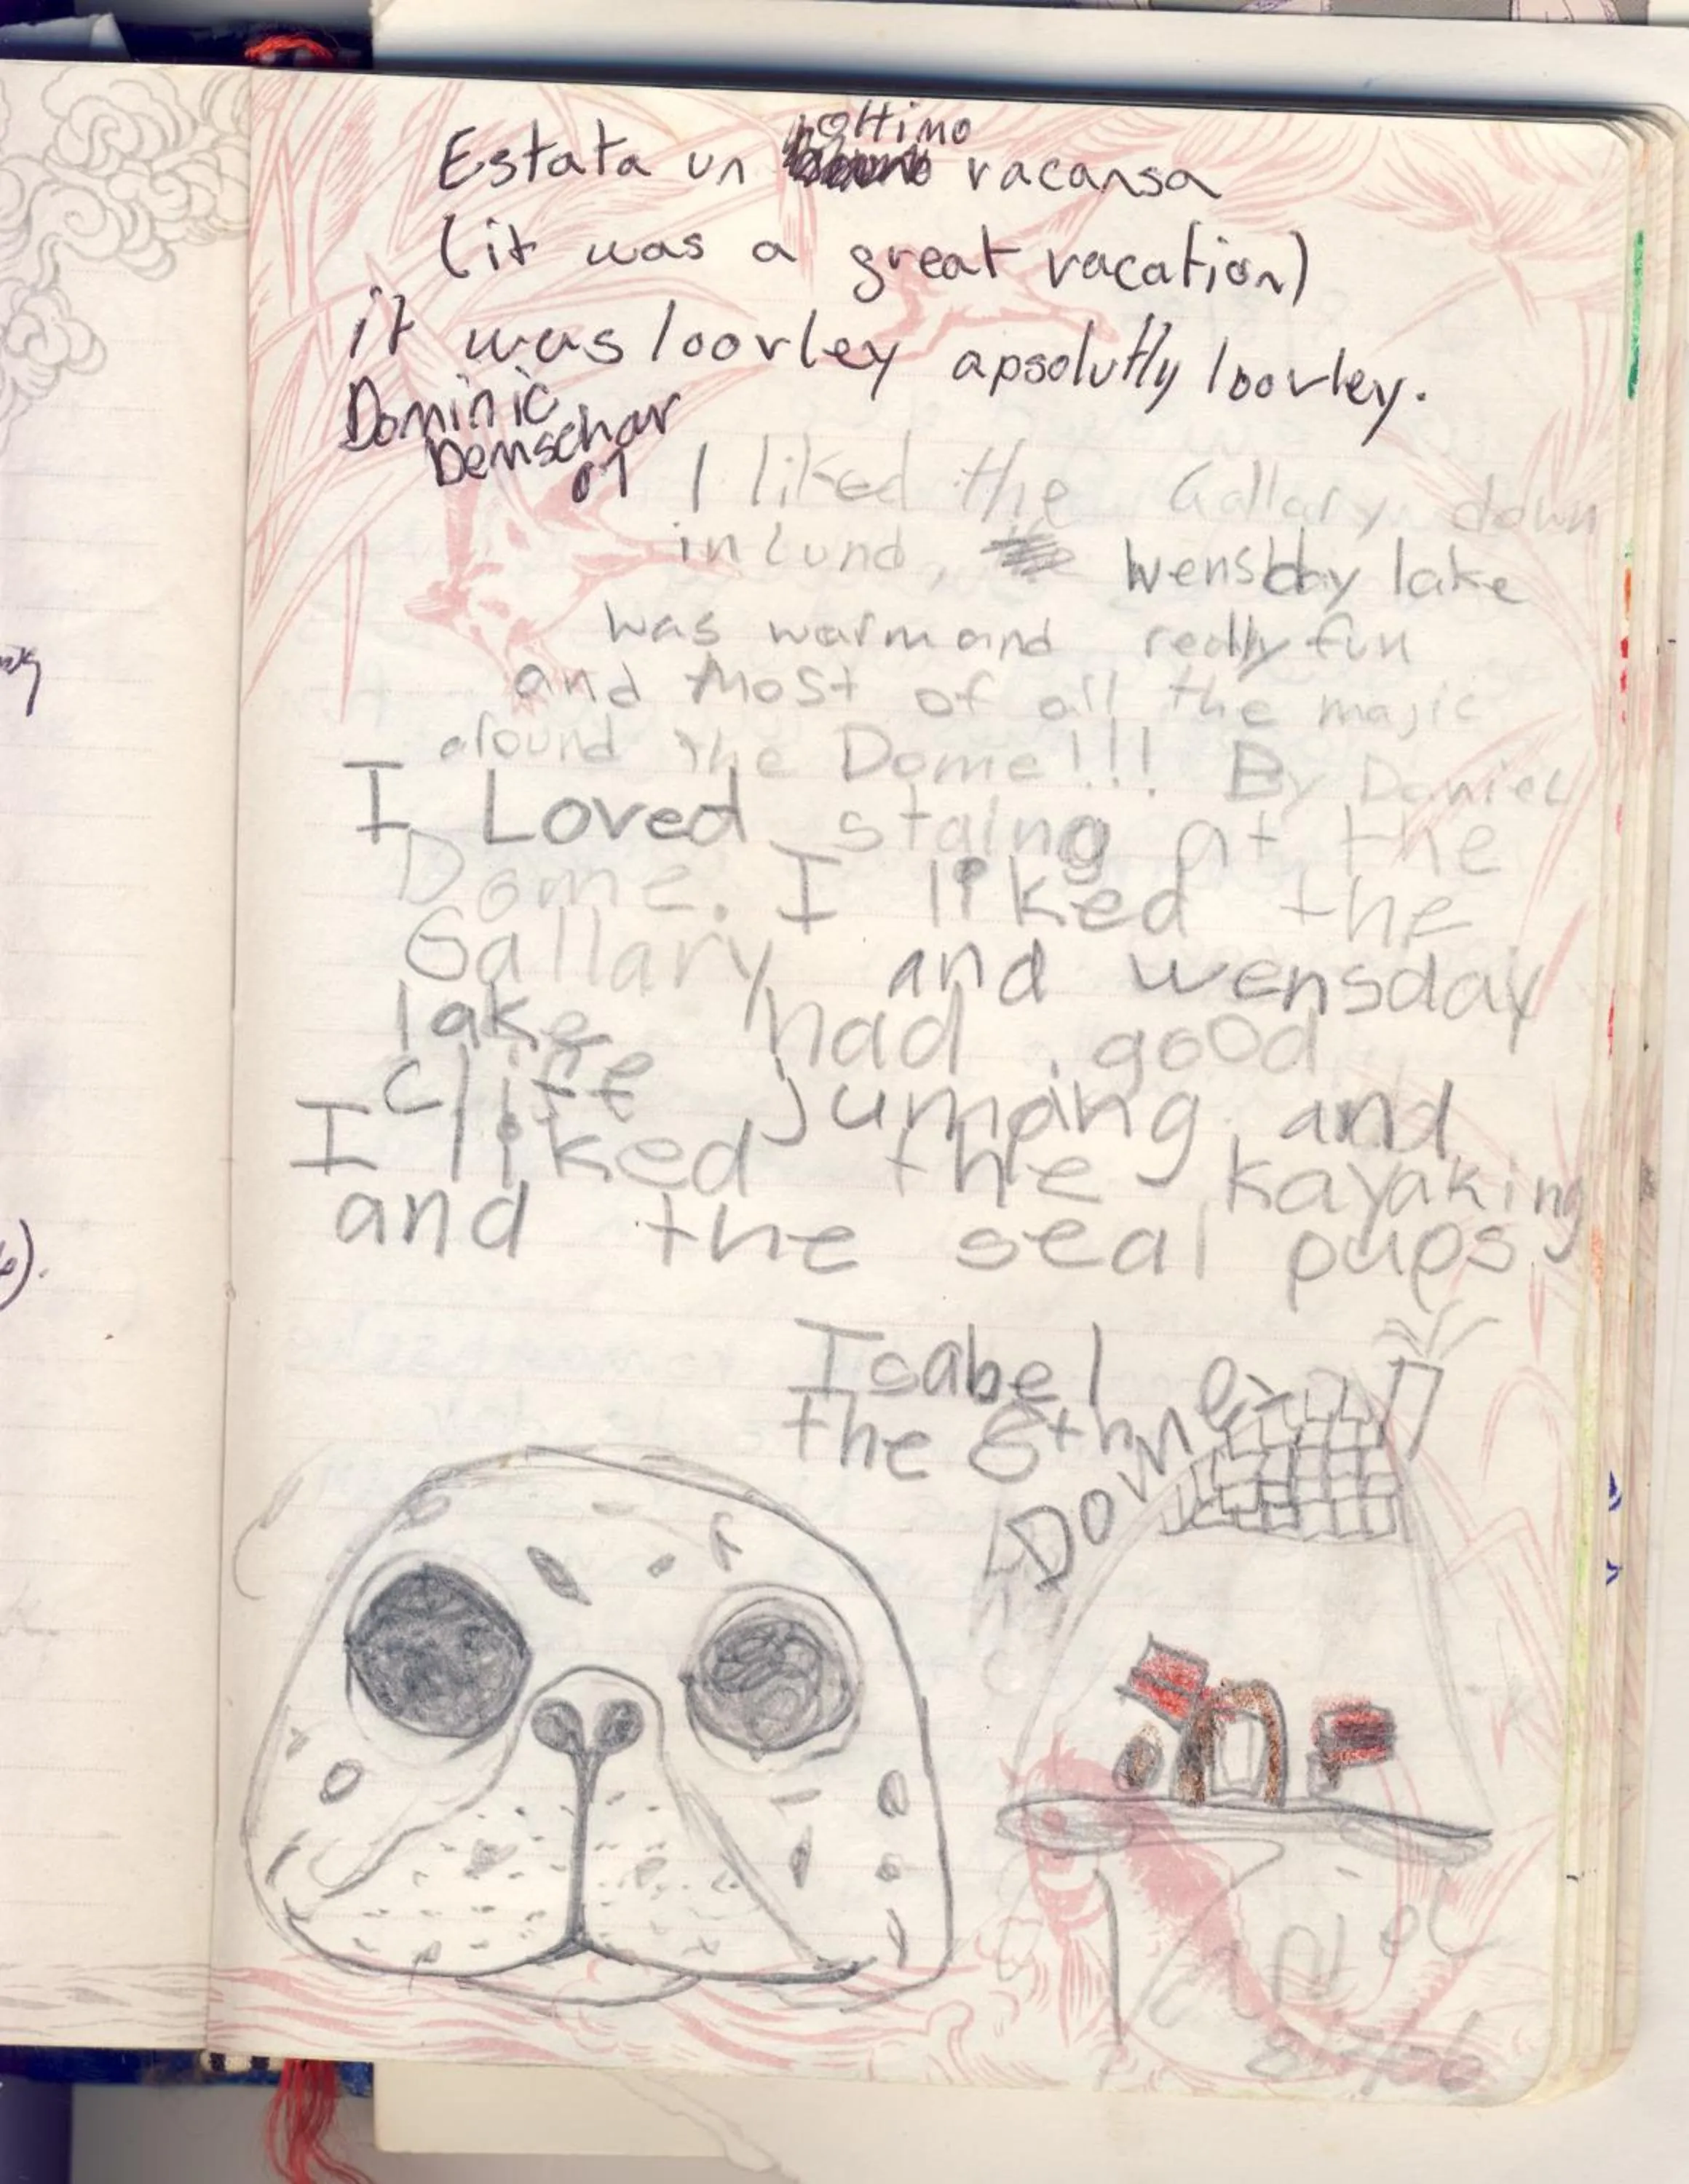 Estata un ottimo vacansa
(it was a great vacation)
it was loovley apsolutly loovley.
Dominic
Demschar
07
I liked the Gallary down
in Lund, wensday lake
was warm and really fun
and most of all the majic
around the Dome!!! By Daniel
I Loved staing at the
Dome. I liked the
Gallary and wensday
lake had good
cliff jumping and
I liked the kayaking
and the seal pups
Isabel
the 6th
Dome